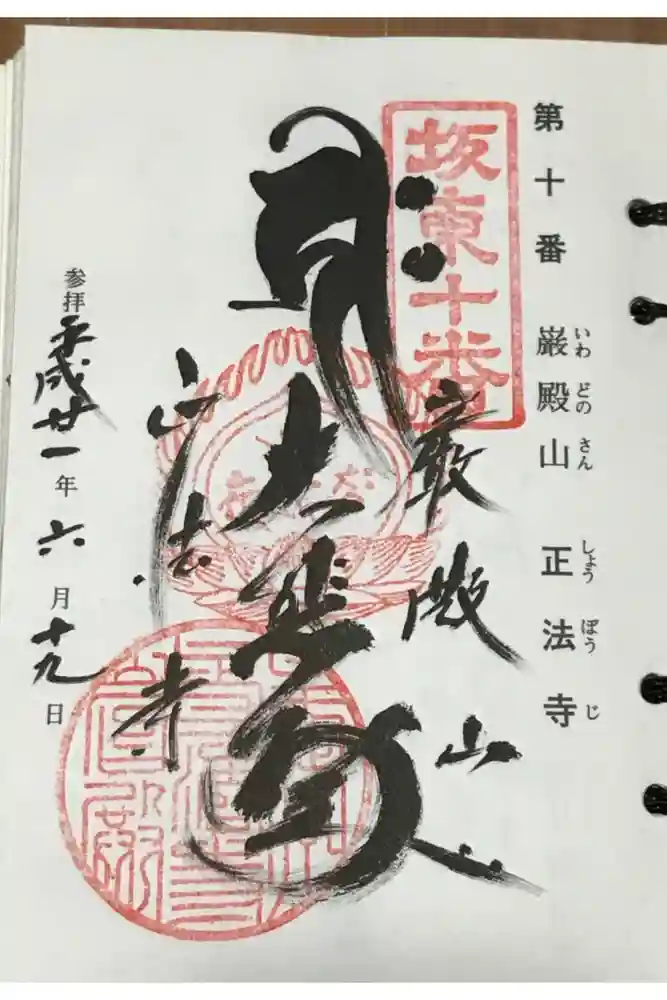 第十番 巌殿山 正法寺
いわ どの さん しょう ぼう じ
坂東十番
巌殿山
大悲殿
正法寺
参拝 平成廿一年 六月十九日